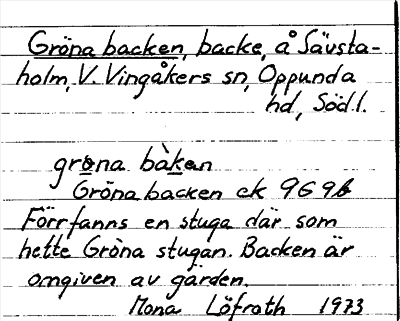 Gröna backen, backe, å Sävsta-
holm, V. Vingåkers sn, Oppunda
hd, Södl.
grøna bàkan
Gröna backen ek 9G9b
Förr fanns en stuga där som
hette Gröna stugan. Backen är
omgiven av gärden.
Mona Löfroth 1973